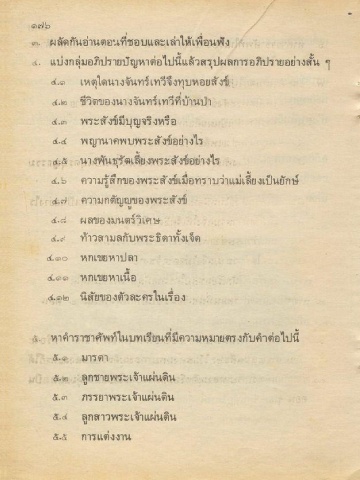 ๑๗๖
๓. ผลัดกันอ่านตอนที่ชอบและเล่าให้เพื่อนฟัง
๔. แบ่งกลุ่มอภิปรายปัญหาต่อไปนี้แล้วสรุปผลการอภิปรายอย่างสั้น ๆ
๔.๑ เหตุใดนางจันทร์เทวีจึงทุบหอยสังข์
๔.๒ ชีวิตของนางจันทร์เทวีที่บ้านป่า
๔.๓ พระสังข์มีบุญจริงหรือ
๔.๔ พญานาคพบพระสังข์อย่างไร
๔.๕ นางพันธุรัตเลี้ยงพระสังข์อย่างไร
๔.๖ ความรู้สึกของพระสังข์เมื่อทราบว่าแม่เลี้ยงเป็นยักษ์
๔.๗ ความกตัญญูของพระสังข์
๔.๘ ผลของมนตร์วิเศษ
๔.๙ ท้าวสามลกับพระธิดาทั้งเจ็ด
๔.๑๐ หกเขยหาปลา
๔.๑๑ หกเขยหาเนื้อ
๔.๑๒ นิสัยของตัวละครในเรื่อง
๕. หาคำราชาศัพท์ในบทเรียนที่มีความหมายตรงกับคำต่อไปนี้
๕.๑ มารดา
๕.๒ ลูกชายพระเจ้าแผ่นดิน
๕.๓ ภรรยาพระเจ้าแผ่นดิน
๕.๔ ลูกสาวพระเจ้าแผ่นดิน
๕.๕ การแต่งงาน